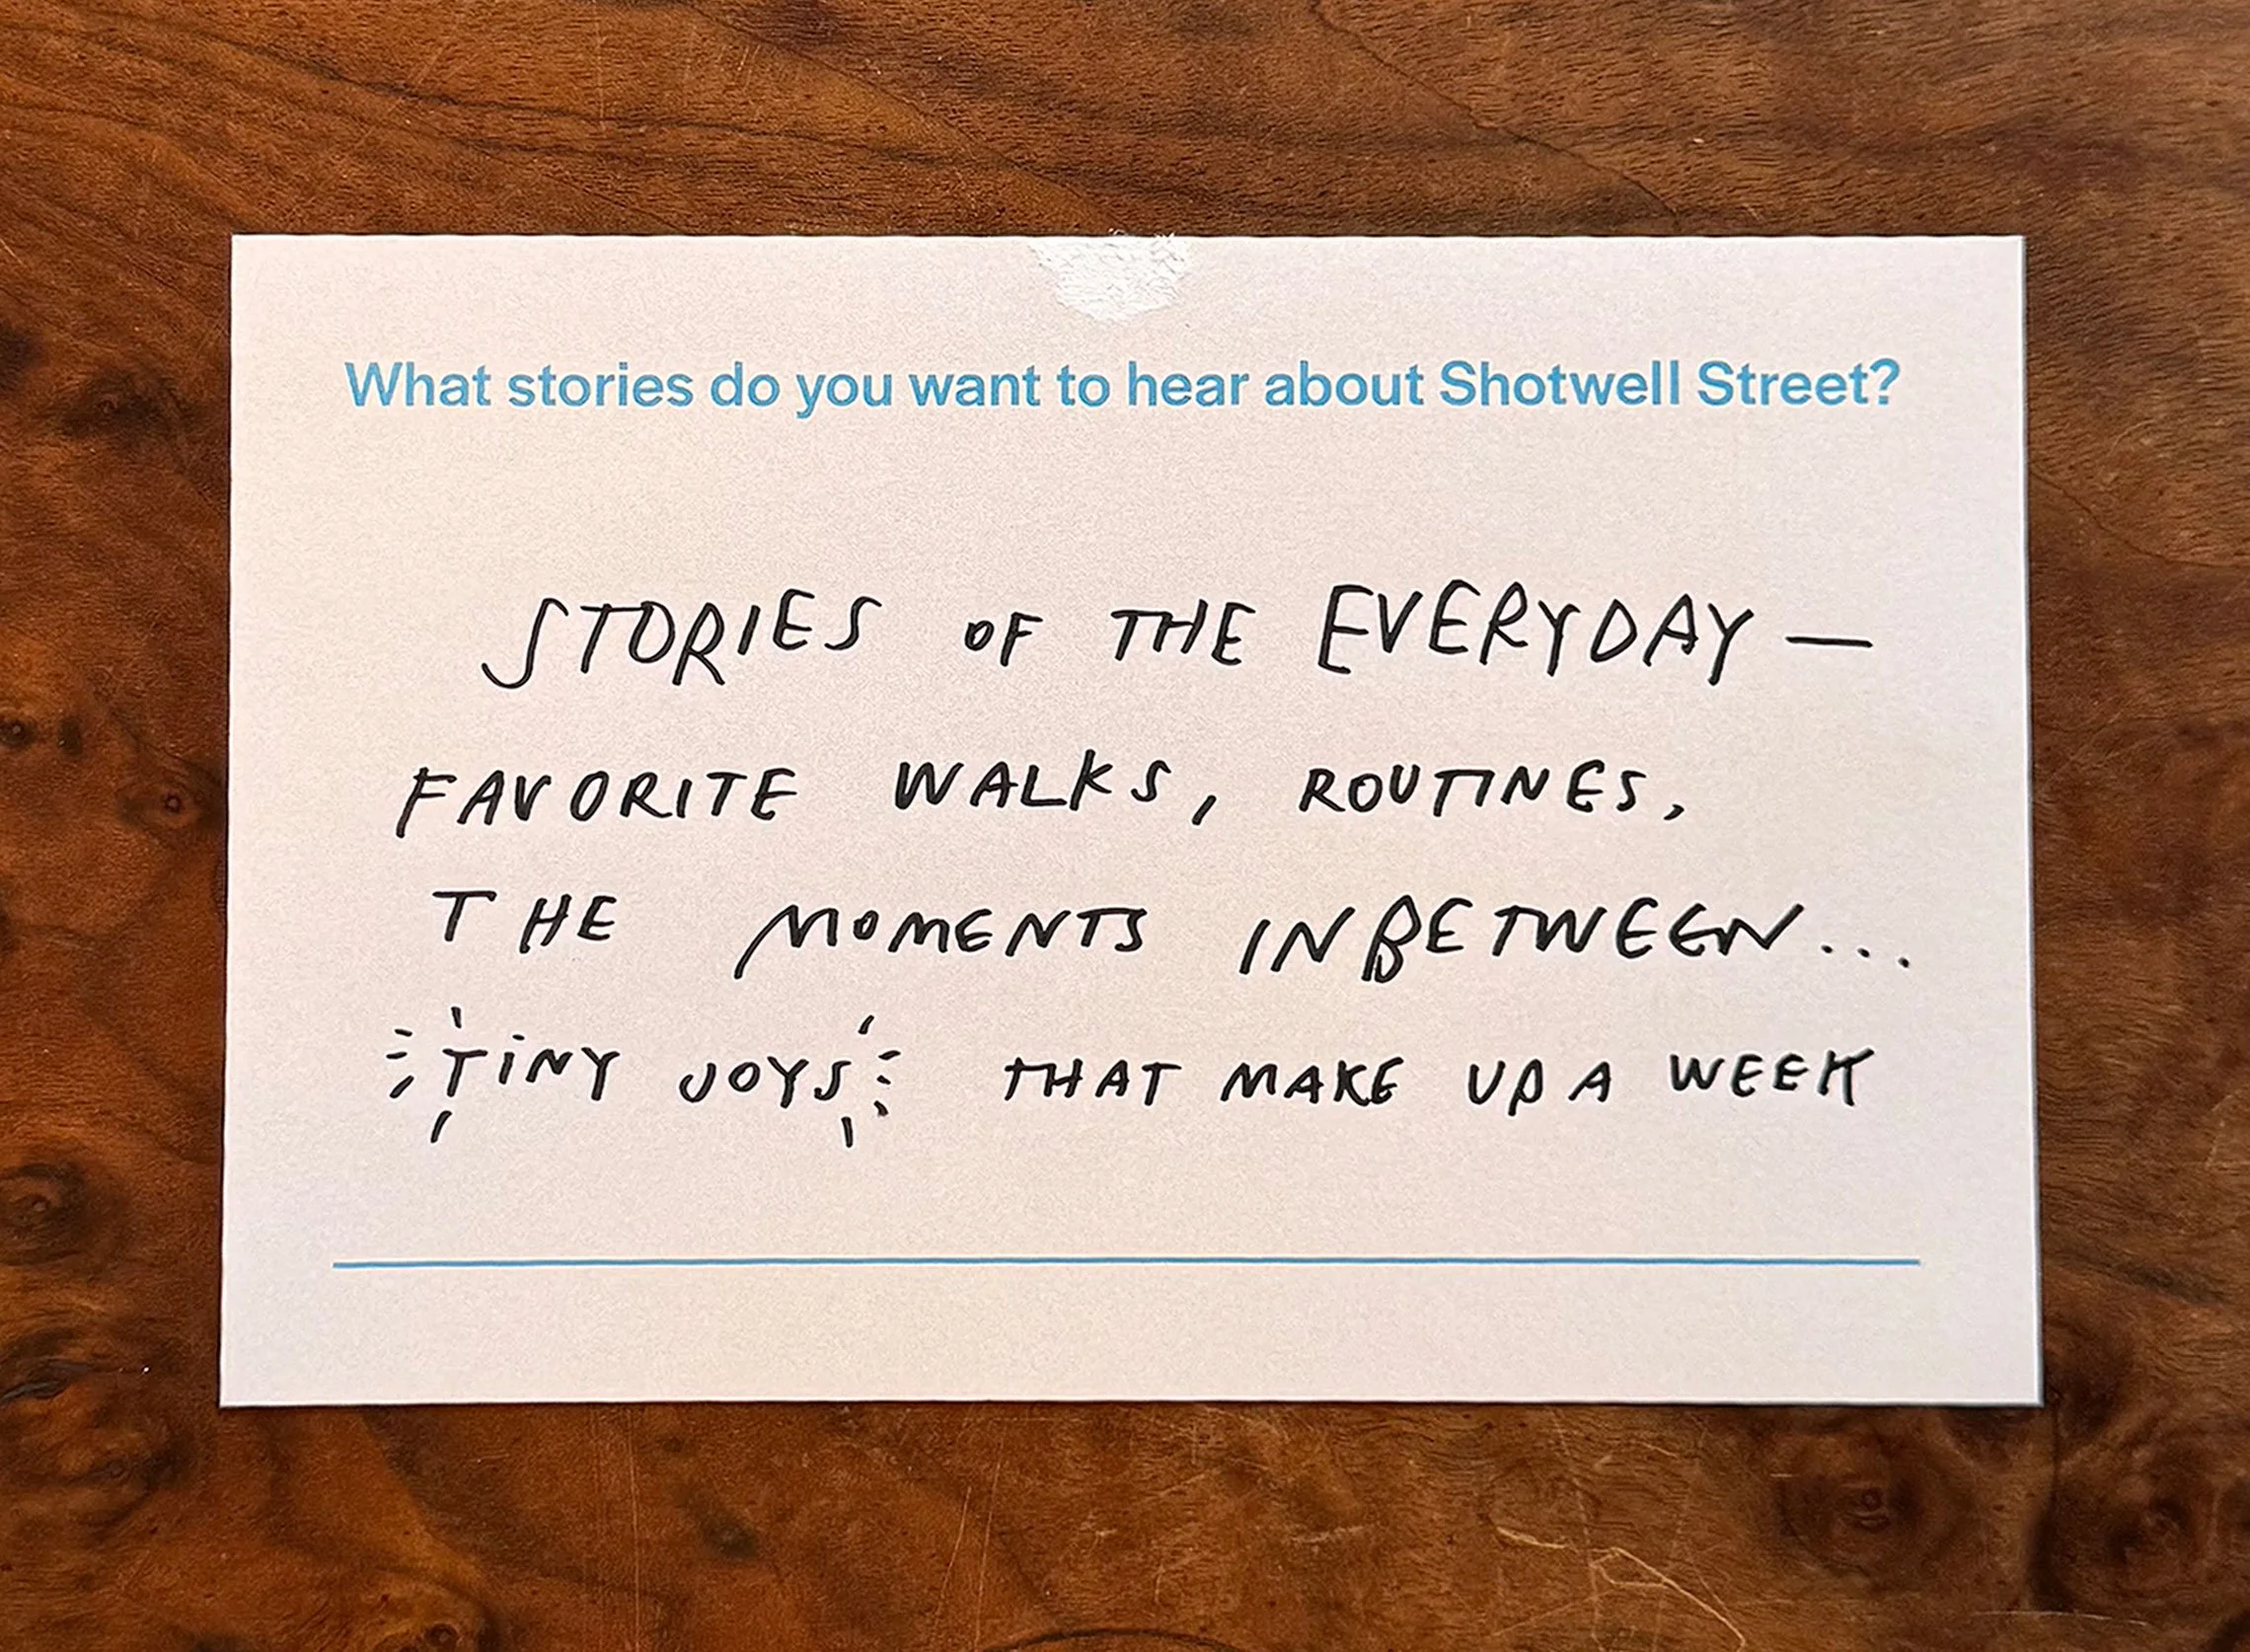 What stories do you want to hear about Shotwell Street?
STORIES OF THE EVERYDAY —
FAVORITE WALKS, ROUTINES,
THE MOMENTS INBETWEEN...
TiNY JOYS THAT MAKE UP A WEEK